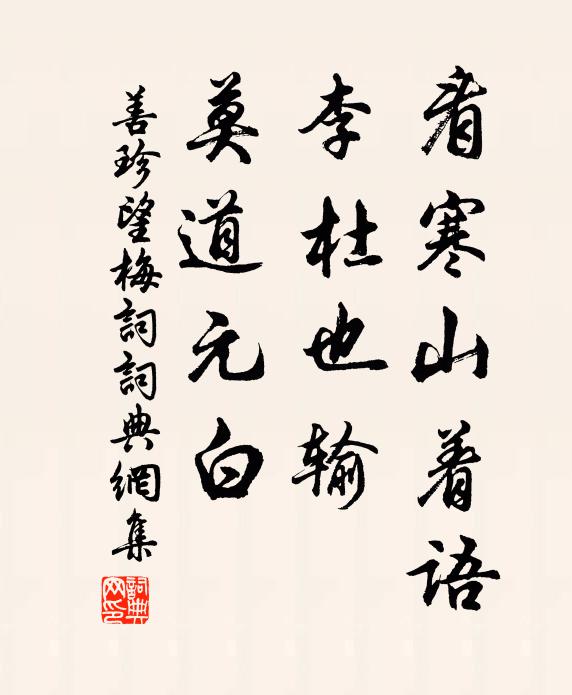 看寒山着语
李杜也输
莫道元白
善珍望梅詞詞典網集
詞典網印